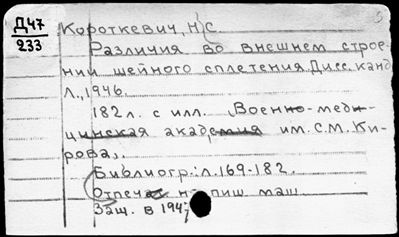 Д47
233
Короткевич, Н. С.
Различия во внешнем строе-
нии шейного сплетения. Дисс. канд
Л., 1946.
182 л. с илл. Военно-меди-
цинская академия им. С.М. Ки-
рова.
Библиогр.: л. 169-182.
Отпечат на пиш маш
Защ. в 1947